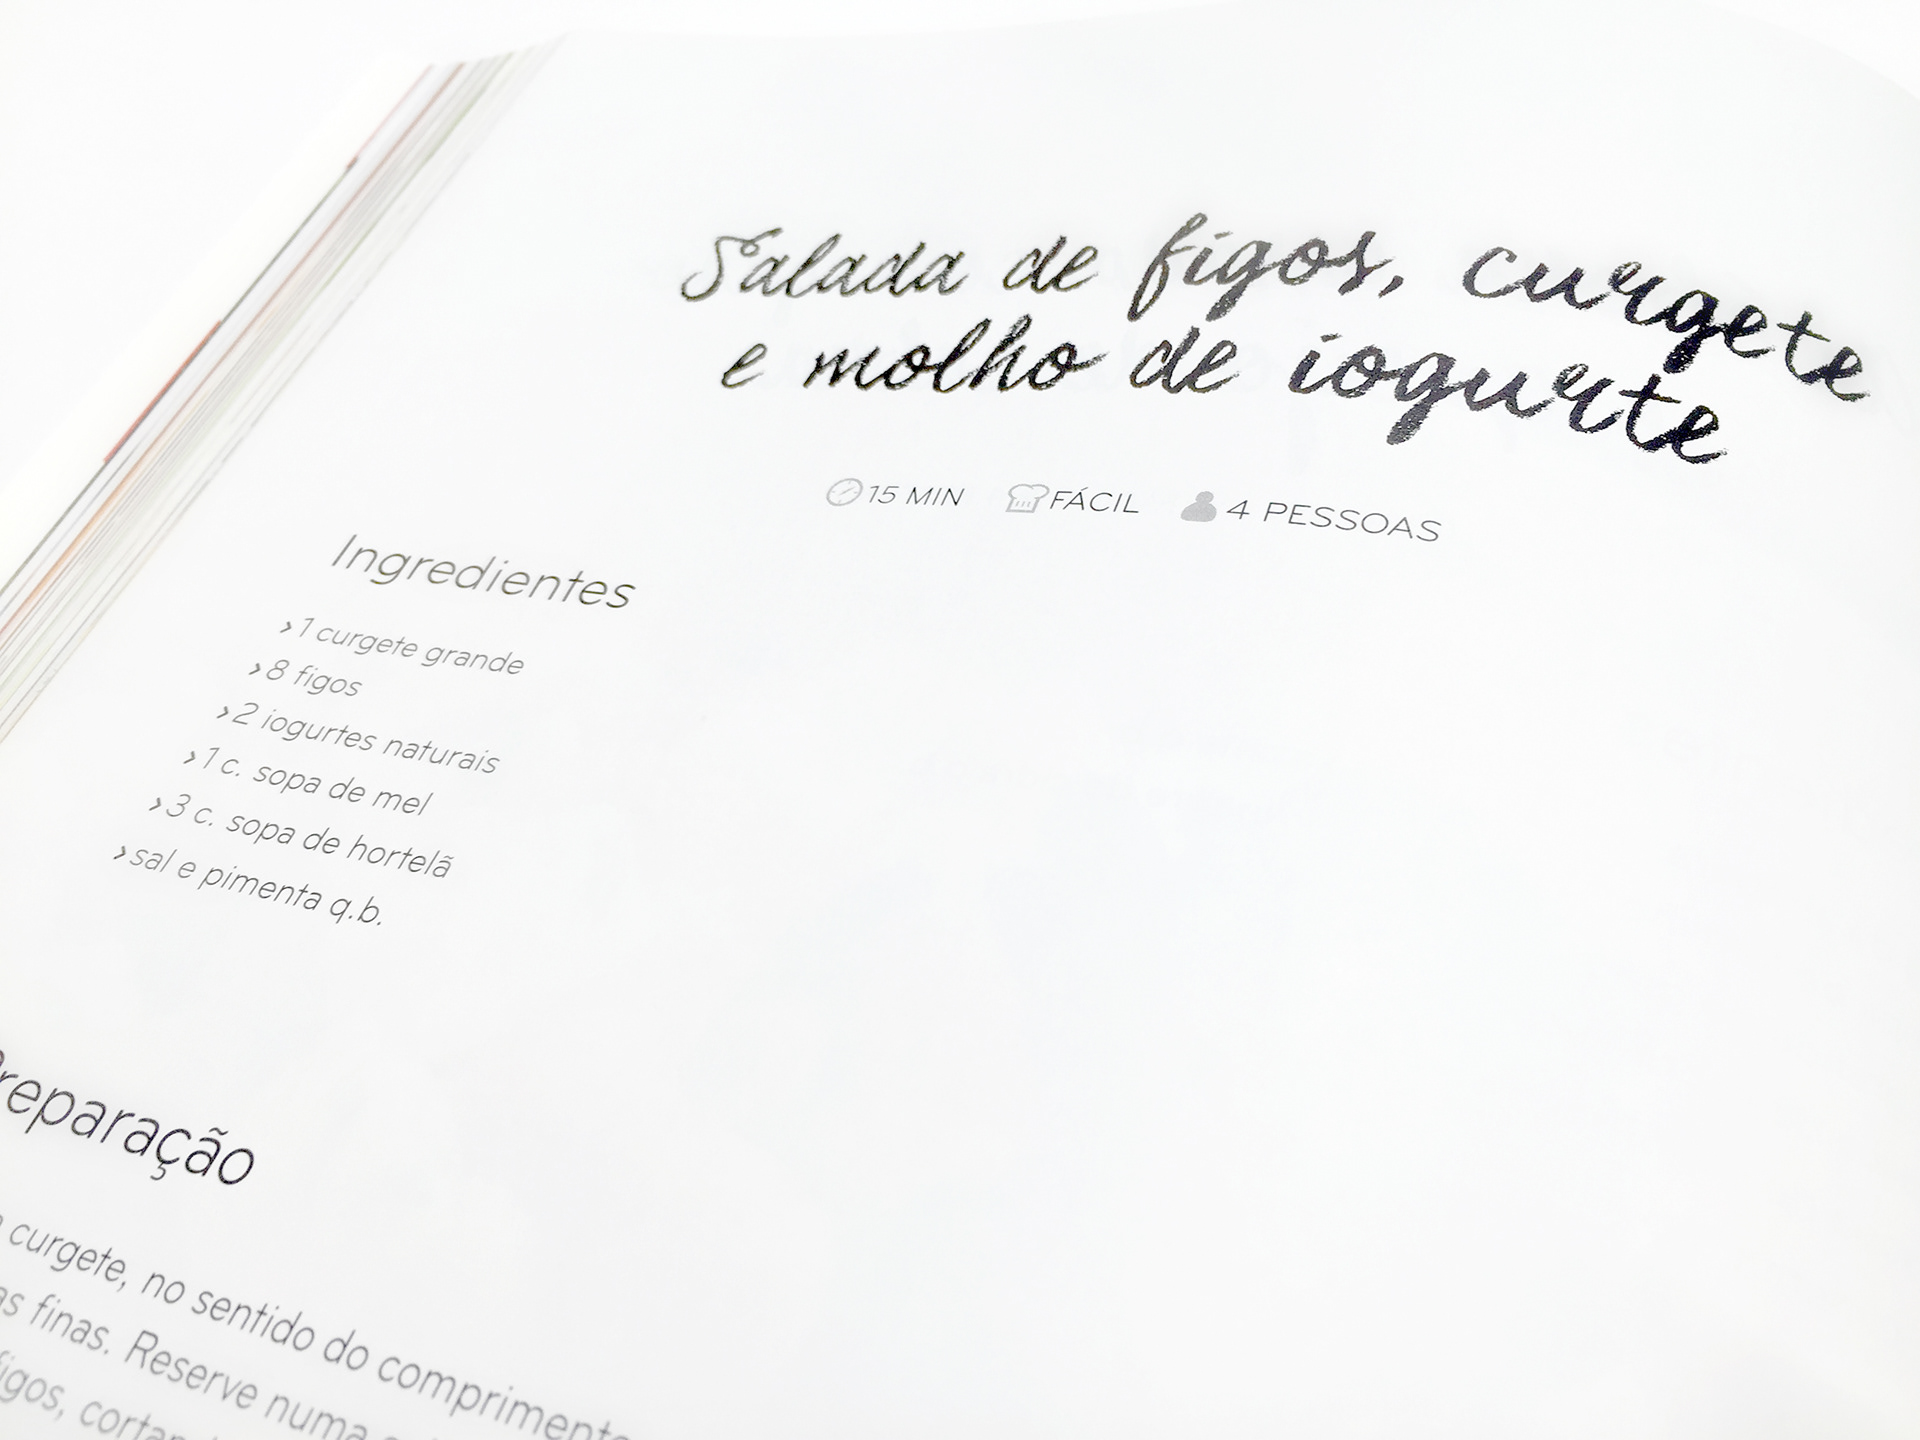 Salada de figos, curgete
e molho de iogurte
15 MIN FÁCIL 4 PESSOAS
Ingredientes
›1 curgete grande
›8 figos
›2 iogurtes naturais
›1 c. sopa de mel
›3 c. sopa de hortelã
›sal e pimenta q.b.
Preparação
curgete, no sentido do comprimento
finas. Reserve numa
figos,